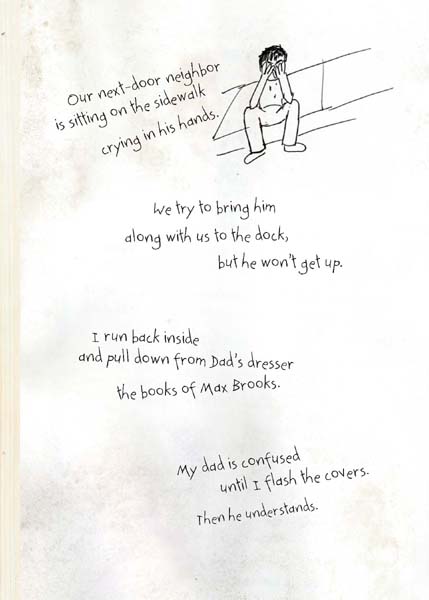 Our next-door neighbor
is sitting on the sidewalk
crying in his hands.
We try to bring him
along with us to the dock,
but he won't get up.
I run back inside
and pull down from Dad's dresser
the books of Max Brooks.
My dad is confused
until I flash the covers.
Then he understands.